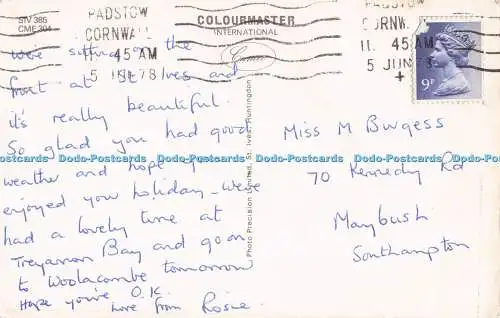 SIV 385
CME 304
COLOURMASTER
INTERNATIONAL
PADSTOW
CORNWALL
11 45 AM
5 JUN 78
PADSTOW
CORNWALL
11 45 AM
5 JUN 78
9P
were sitting on the
front at St Ives and
it's really beautiful.
So glad you had good
weather and hope you
enjoyed your holiday - We've
had a lovely time at
Treyarnon Bay and go on
to Woolacombe tomorrow
Hope you're O.K.
Love from Rosie.
Photo Precision Limited, St. Ives, Huntingdon
Miss M Burgess
70 Kennedy Rd
Maybush
Southampton
Dodo-Postcards Dodo-Postcards Dodo-Postcards Dodo-Postcards Dodo-Postcards